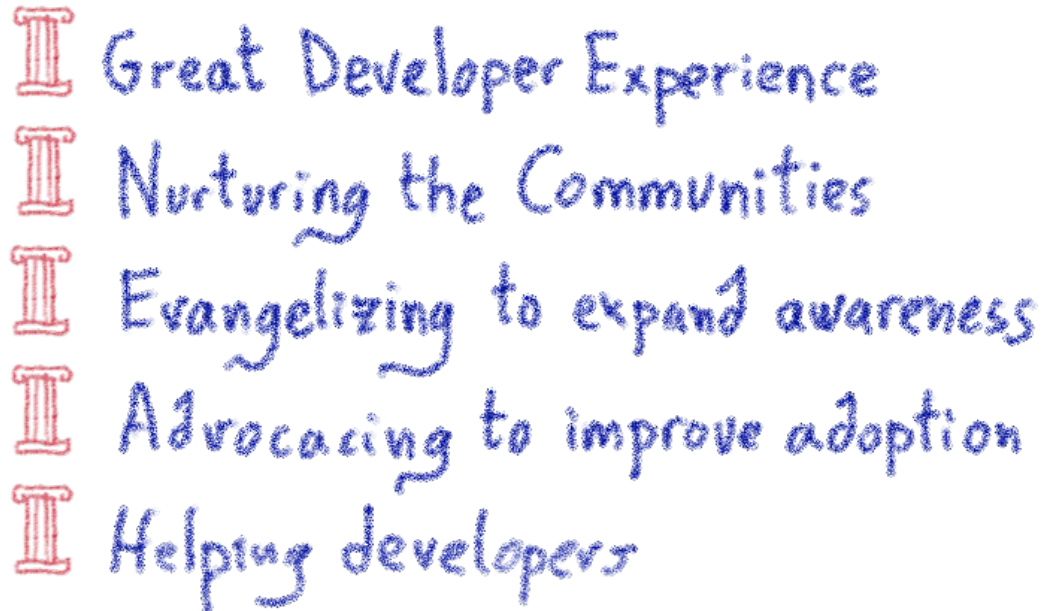 Great Developer Experience
Nurturing the Communities
Evangelizing to expand awareness
Advocacing to improve adoption
Helping developers